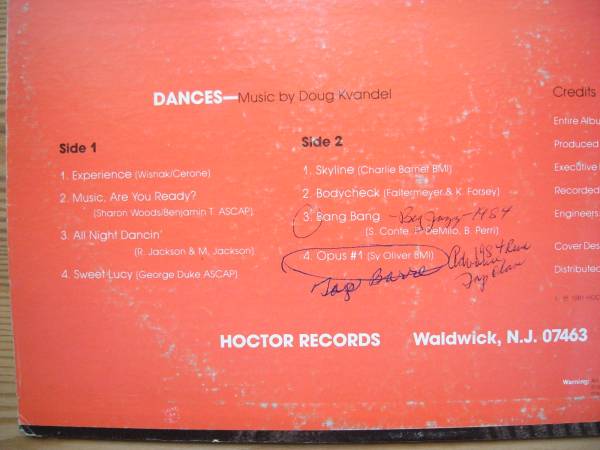 DANCES—Music by Doug Kvandel
Side 1
1. Experience (Wisnak/Cerone)
2. Music, Are You Ready?
(Sharon Woods/Benjamin T. ASCAP)
3. All Night Dancin'
(R. Jackson & M. Jackson)
4. Sweet Lucy (George Duke ASCAP)
Side 2
1. Skyline (Charlie Barnet BMI)
2. Bodycheck (Faltermeyer & K. Forsey)
3. Bang Bang - Beg Jazz - 1984
(S. Conte, P. DeMilo, B. Perri)
4. Opus #1 (Sy Oliver BMI)
Tap Barre
1984
Tap
Credits
Entire Albu
Produced
Executive
Recorded
Engineers:
Cover Des
Distributed
HOCTOR RECORDS Waldwick, N.J. 07463
Warning: